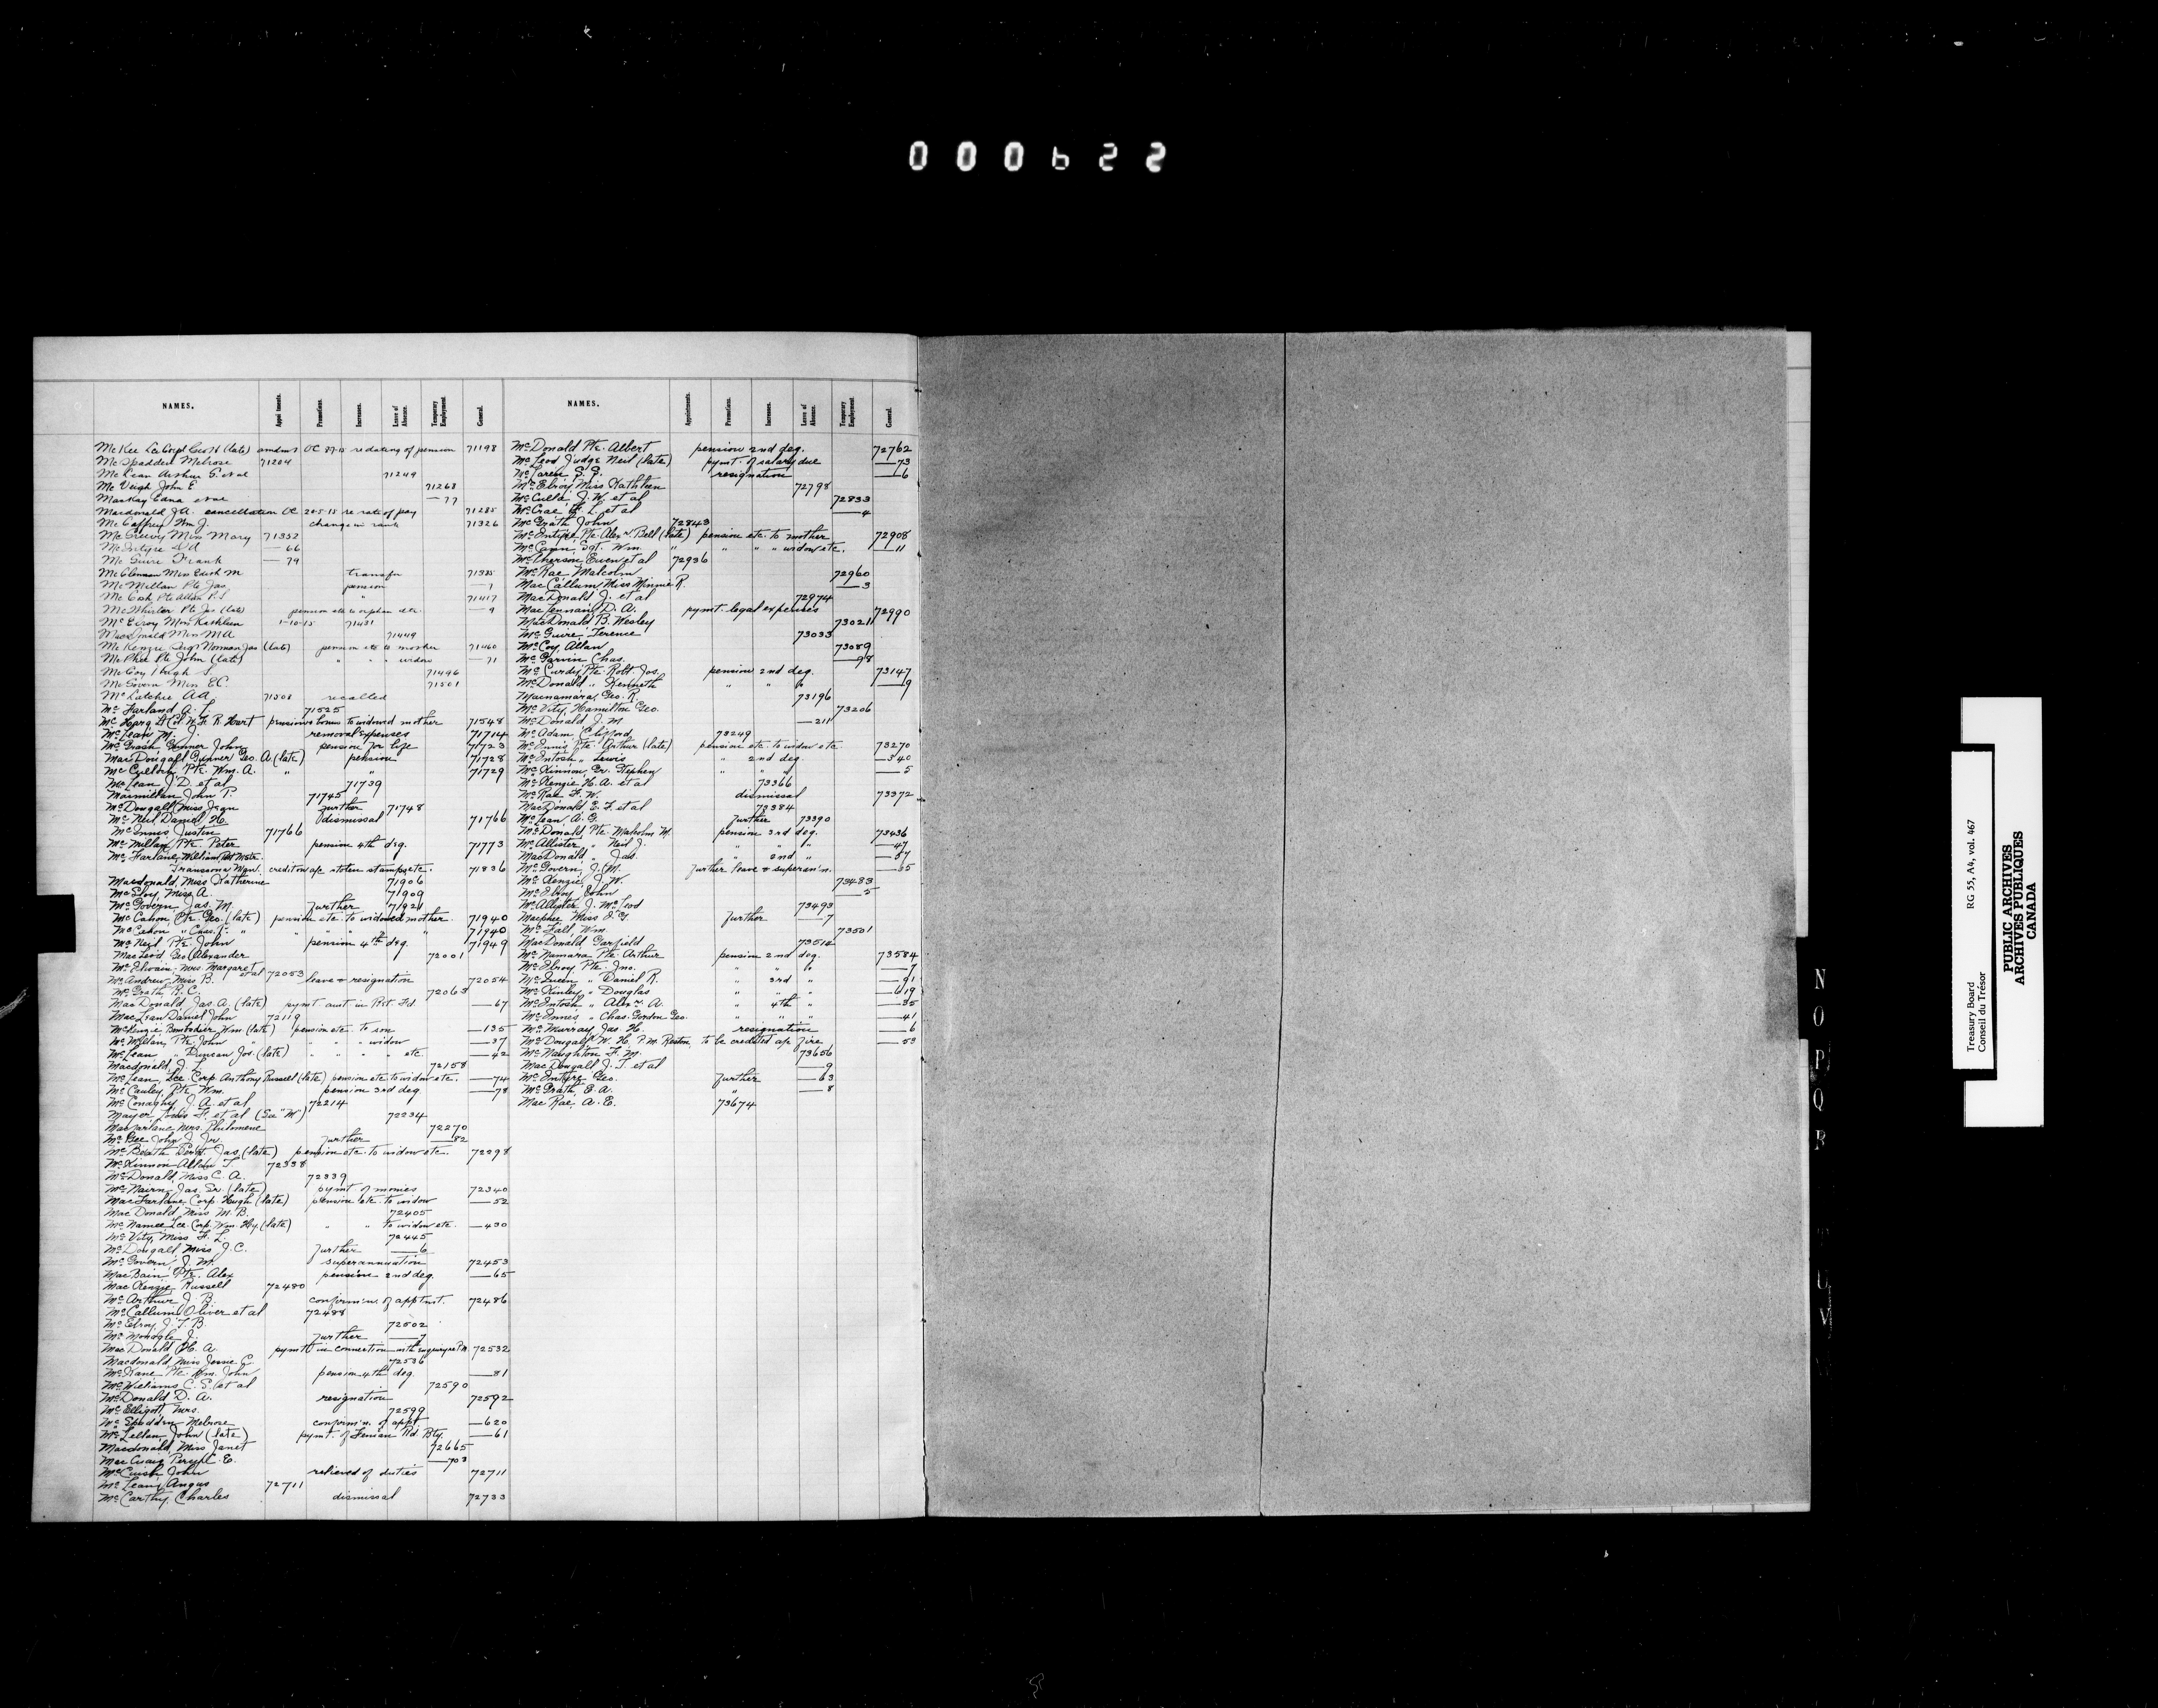 000622
NAMES.
Appointments.
Promotions.
Increases.
Leave of Absence.
Temporary Employment.
General.
McKee Lce Corpl Geo H (late) amdmt OC re dating of pension 71198
McSpadden Melrose 71204
McLean Arthur S. et al 71249
McVeigh John E 71268
MacKay Edna et al — 77
Macdonald J.A. cancellation OC 20-5-15 re rate of pay 71285
McCaffrey Wm J. change in rank 71326
McGreevy Miss Mary 71352
McIntyre — 66
McGuire Frank — 79
McClennan Miss Edith M transfer 71385
McMillan Pte Jas pension — 7
McCosh Pte Allan P.S. " 71417
McWhirter Pte Jas (late) pension etc to orphan etc. — 9
McElroy Miss Kathleen 1-10-15 71431
Macdonald Miss M A 71449
McKenzie Sigr Norman Jas (late) pension etc to mother 71460
McPhee Pte John (late) " " " widow — 71
McCoy Hugh S. 71496
McGovern Miss E.C. 71501
McLatchie A A. 71508 recalled
McFarland A. L. 71525
McHarg Lt Col W. F. R. Hart pension & bonus to widowed mother 71548
McLean M. J. removal expenses 71714
McGrash Gunner John pension for life 71723
MacDougall Gunner Geo. A (late) pension 71728
McCulloch, Pte. Wm. A. " " 71729
McLean J. D. et al 71739
Macmillan John T. 71745
McDougall Miss Jean further 71748
McNeil Daniel H. dismissal 71766
McInnis Justin 71766
McMillan, Pte. Peter pension 4th deg. 71773
McFarlane, William, Post Mstr.
Transcona Man. credit on a/c stolen stamps etc. 71836
Macdonald, Miss Katherine 71906
McEvoy, Miss A. 71909
McGovern Jas. M. further 71921
McCahon Pte. Geo. (late) pension etc. to widowed mother. 71940
McCahon " Chas. J. " " " " " " 71940
McNeil Pte. John pension 4th deg. 71949
MacLeod Geo Alexander 72001
McIlwain, Mrs. Margaret et al 72053
McAndrew, Miss B. leave & resignation 72054
McGrath R. C. 72063
MacDonald Jas. A. (late) pymt amt in Ret. Fd. — 67
MacLean Daniel John 72119
McKenzie Bombadier Wm. (late) pension etc. to son — 135
McMillan, Pte. John " " " " widow — 37
McLean " Duncan Jos. (late) " " " " etc — 42
Macdonald J. L. 72158
McLean, Lce Corp. Anthony Russell (late) pension etc to widow etc. — 74
McCauley, Pte. Wm. pension 3rd deg. — 78
McConaghy J. A. et al 72214
Mayer, Louis F. et al (See "M") 72234
Macfarlane Mrs. Philomene 72270
McGee John J. Jr. further — 82
McBeath Sergt. Jas. (late) pension etc. to widow etc. 72298
McKinnon Allan T. 72338
McDonald, Miss C. A. 72339
McNairn Jas. Sr. (late) pymt. of monies 72340
MacFarlane Corp. Hugh (late) pension etc. to widow — 52
MacDonald, Miss M. B. 72405
McNamee Lce. Corp. Wm. Hy. (late) " " to widow etc. — 430
McVity, Miss F. L. 72445
McDougall, Miss J. C. further — 6
McGovern, J. M. superannuation 72453
MacBain Pte. Alex pension 2nd deg. — 65
MacKenzie, Russell 72480
McArthur J. B. confirm'n. of apptmt. 72486
McCallum Oliver et al 72488
McElroy, J. T. B. 72502
McMonagle J. further — 7
MacDonald H. A. pymt in connection with enquiry re P.M. 72532
Macdonald, Miss Jessie C. 72536
McKane Pte. Wm. John pension 4th deg. — 81
McWilliams C. S. et al 72590
McDonald D. A. resignation 72592
McElligott, Mrs. 72599
McSpadden Melrose confirm'n. of appt. — 620
McLellan, John (late) pymt. of Fenian Rd. Bty. — 61
Macdonald, Miss Janet 72665
MacCraig Percyl. E. — 703
McCuish John relieved of duties 72711
McLean, Angus 72711
McCarthy, Charles dismissal 72733
NAMES.
Appointments.
Promotions.
Increases.
Leave of Absence.
Temporary Employment.
General.
McDonald Pte. Albert pension 2nd deg. 72762
McLeod Judge Neil (late) pymt. of salary due — 73
McLaren S. G. resignation — 6
McElroy Miss Kathleen 72798
McCulla J. W. et al 72833
McCrae F. L. et al — 4
McGrath John 72843
McIntyre, Pte. Alexr. Bell (late) pension etc. to mother 72908
McCann, Sgt. Wm. " " " " widow etc. — 11
McPherson Ewen et al 72936
McRae, Malcolm 72960
MacCallum, Miss Minnie R. — 3
MacDonald J. et al 72974
MacLennan, D. A. pymt. legal expenses 72990
MacDonald B. Wesley 73021
McGuire Terence 73033
McCoy, Allan 73089
McGarvin Chas. — 98
McCurdy, Pte. Robt. Jos. pension 2nd deg. 73147
McDonald " Kenneth " " " — 9
Macnamara, Geo. R. 73196
McVity, Hamilton Geo. 73206
McDonald J. M — 211
McAdam, Clifford 73249
McInnis Pte. Arthur (late) pension etc. to widow etc 73270
McIntosh " Lewis " 2nd deg — 340
McKinnon, Gr. Stephen " " " — 5
McKenzie H. A. et al 73366
McRae F. W. dismissal 73372
MacDonald E. F. et al 73384
McLean, A. G. further 73390
McDonald, Pte. Malcolm M. pension 3rd deg. 73436
McAllister " Neil J. " " " — 47
MacDonald " Jas. " 2nd " — 57
McGovern, J. M. further leave & superan'n. — 55
McKenzie, J. W. 73483
McIlroy John — 5
McAllister J. McLeod 73493
Macphee Miss J. G. further — 7
McFall, Wm. 73501
MacDonald, Garfield 73512
McNamara Pte. Arthur pension 2nd deg. 73584
McElroy Pte. Jno. " " " — 7
McQueen " Daniel R. " 3rd " — 91
McKinley " Douglas " " " — 619
McIntosh " Alexr. A. " 4th " — 35
McInnes " Chas. Gordon Geo. " " " — 41
McMurray, Jas H. resignation — 6
McDougall, W. H. P.M. Reston, to be credited a/c fire — 53
McNaughton F. M. 73656
MacDougall J. T. et al — 9
McIntyre Geo. further — 63
McGrath E. A. — 8
MacRae, A. E. 73674
N
O
P
Q
R
U
V
Treasury Board RG 55, A4, vol. 467
Conseil du Trésor
PUBLIC ARCHIVES
ARCHIVES PUBLIQUES
CANADA